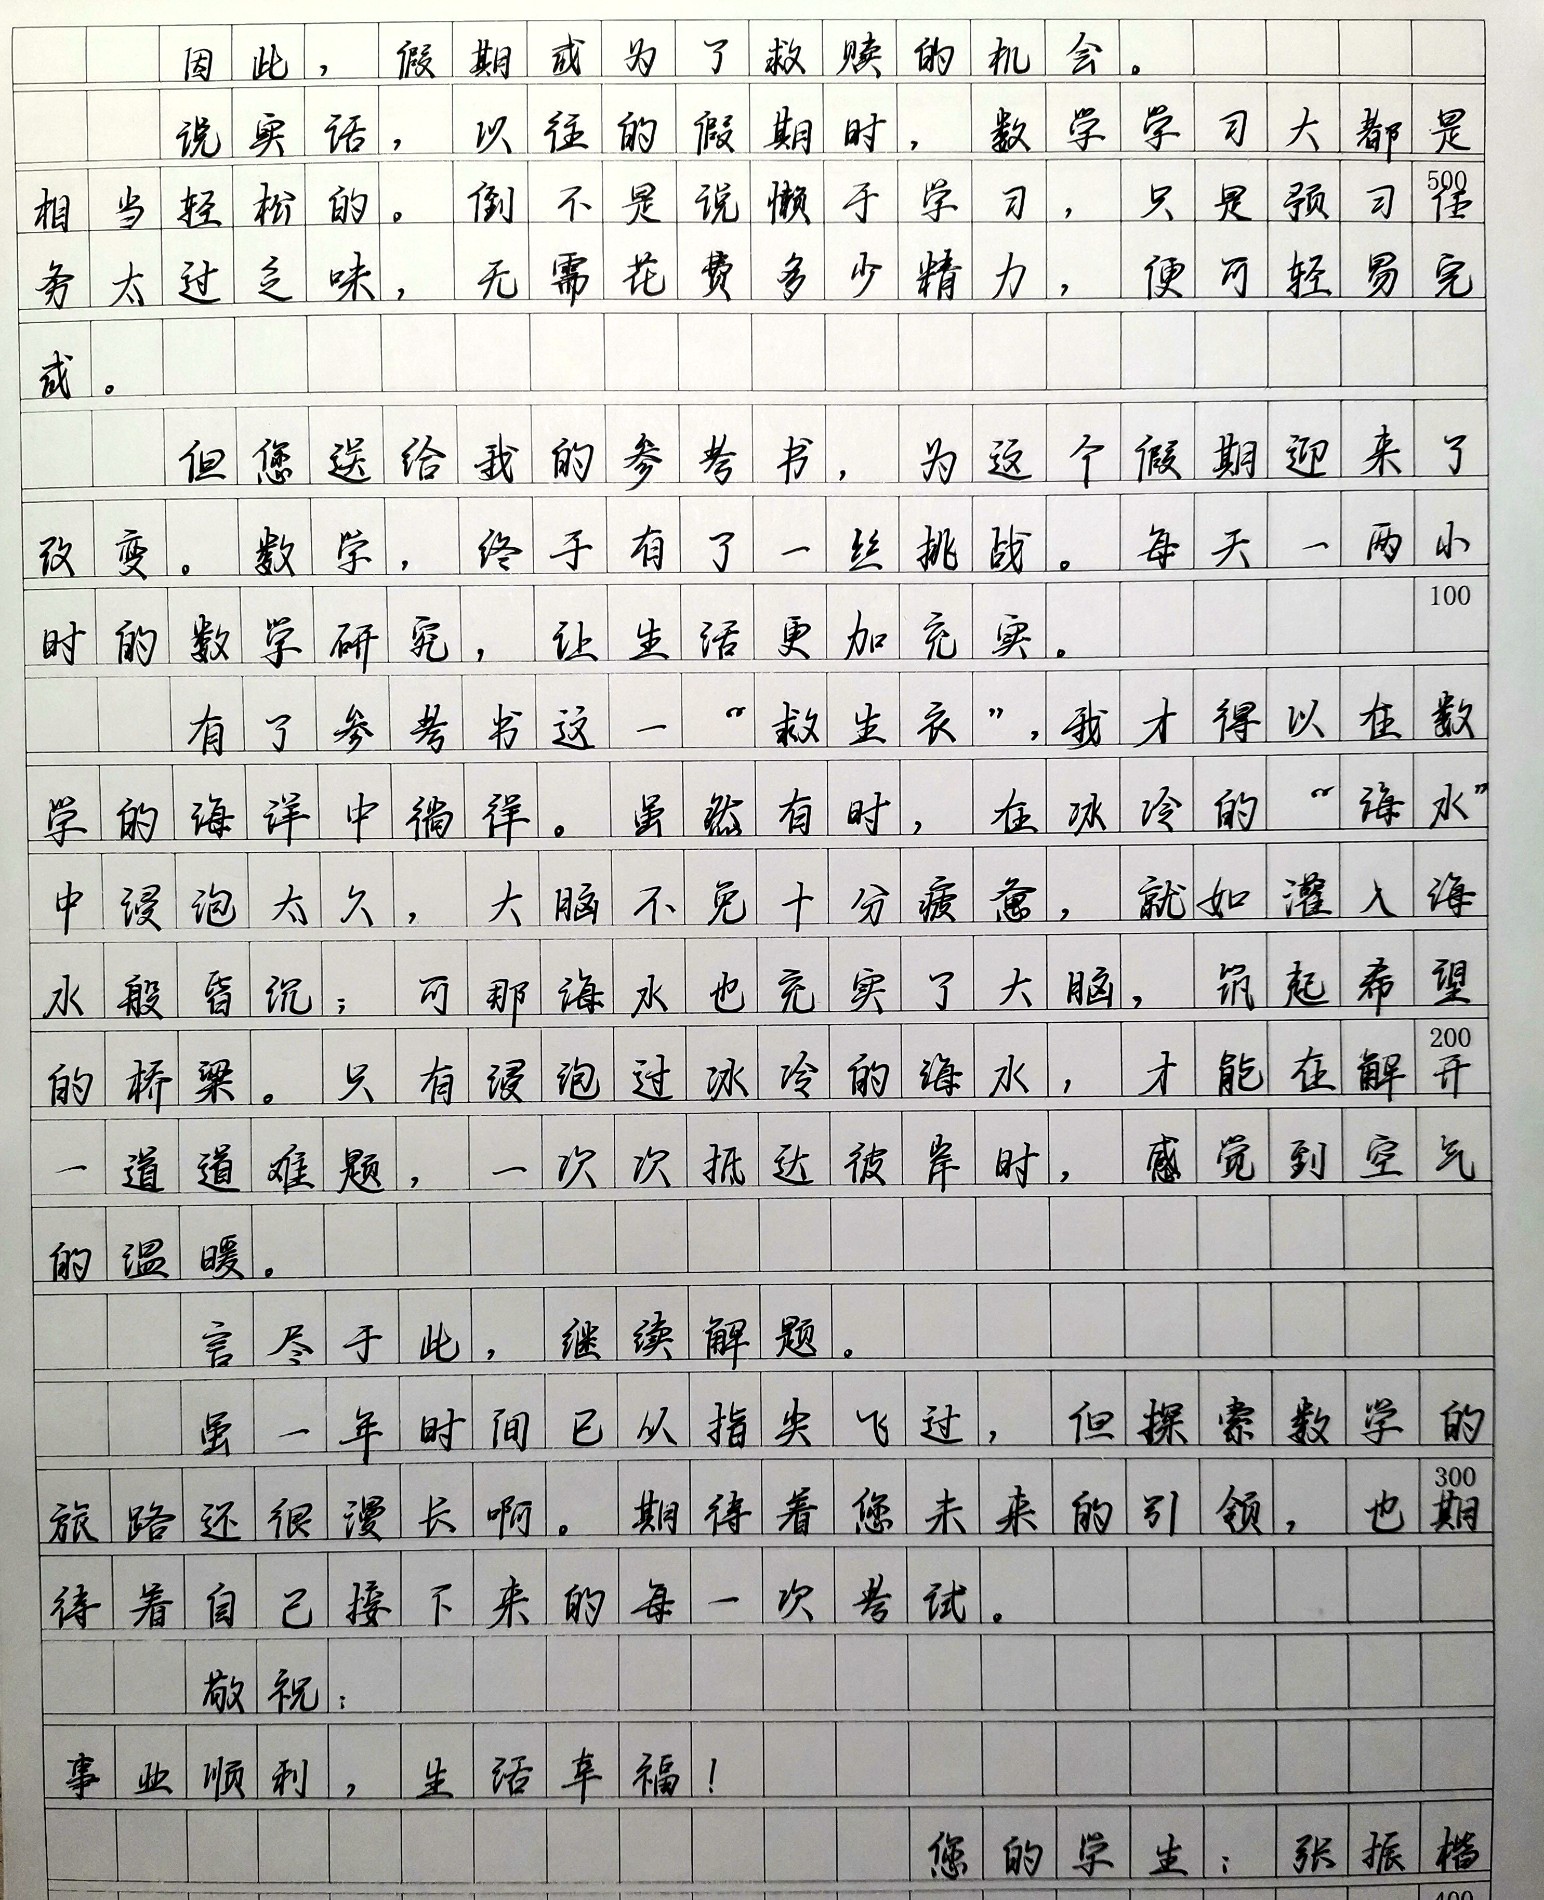 因此，假期成为了救赎的机会。
说实话，以往的假期时，数学学习大都是
500
相当轻松的。倒不是说懒于学习，只是预习任
务太过乏味，无需花费多少精力，便可轻易完
成。
但您送给我的参考书，为这个假期迎来了
改变。数学，终于有了一丝挑战。每天一两小
100
时的数学研究，让生活更加充实。
有了参考书这一“救生衣”，我才得以在数
学的海洋中徜徉。虽然有时，在冰冷的“海水”
中浸泡太久，大脑不免十分疲惫，就如灌入海
水般昏沉；可那海水也充实了大脑，筑起希望
200
的桥梁。只有浸泡过冰冷的海水，才能在解开
一道道难题，一次次抵达彼岸时，感觉到空气
的温暖。
言尽于此，继续解题。
虽一年时间已从指尖飞过，但探索数学的
300
旅路还很漫长啊。期待着您未来的引领，也期
待着自己接下来的每一次考试。
敬祝：
事业顺利，生活幸福！
您的学生：张振楷
400